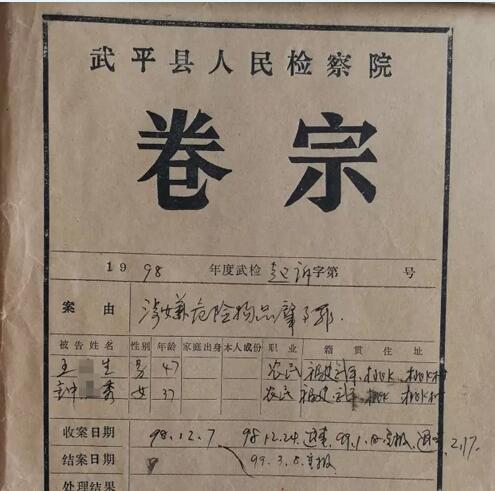 武平县人民检察院
卷宗
1998年度武检起诉字第 号
案由 涉嫌危险物品肇事罪.
被告姓名 性别 年龄 家庭出身 本人成份 职业 籍贯住址
王 生 男 47 农民 福建武平
钟 秀 女 37 农民 福建武平
收案日期 98.12.7 98.12.24 退查 99.1. 重报 2.17.
结案日期 99.3.8.重报
处理结果